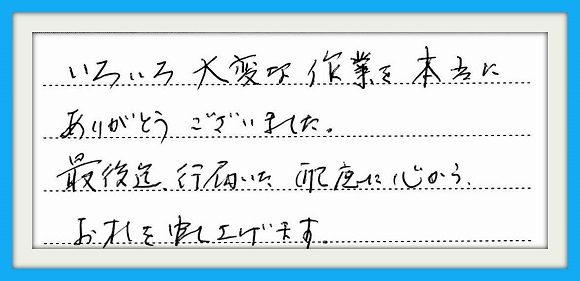 いろいろ大変な作業を本当に
ありがとうございました。
最後迄、行届いた配慮に心から
お礼を申し上げます。